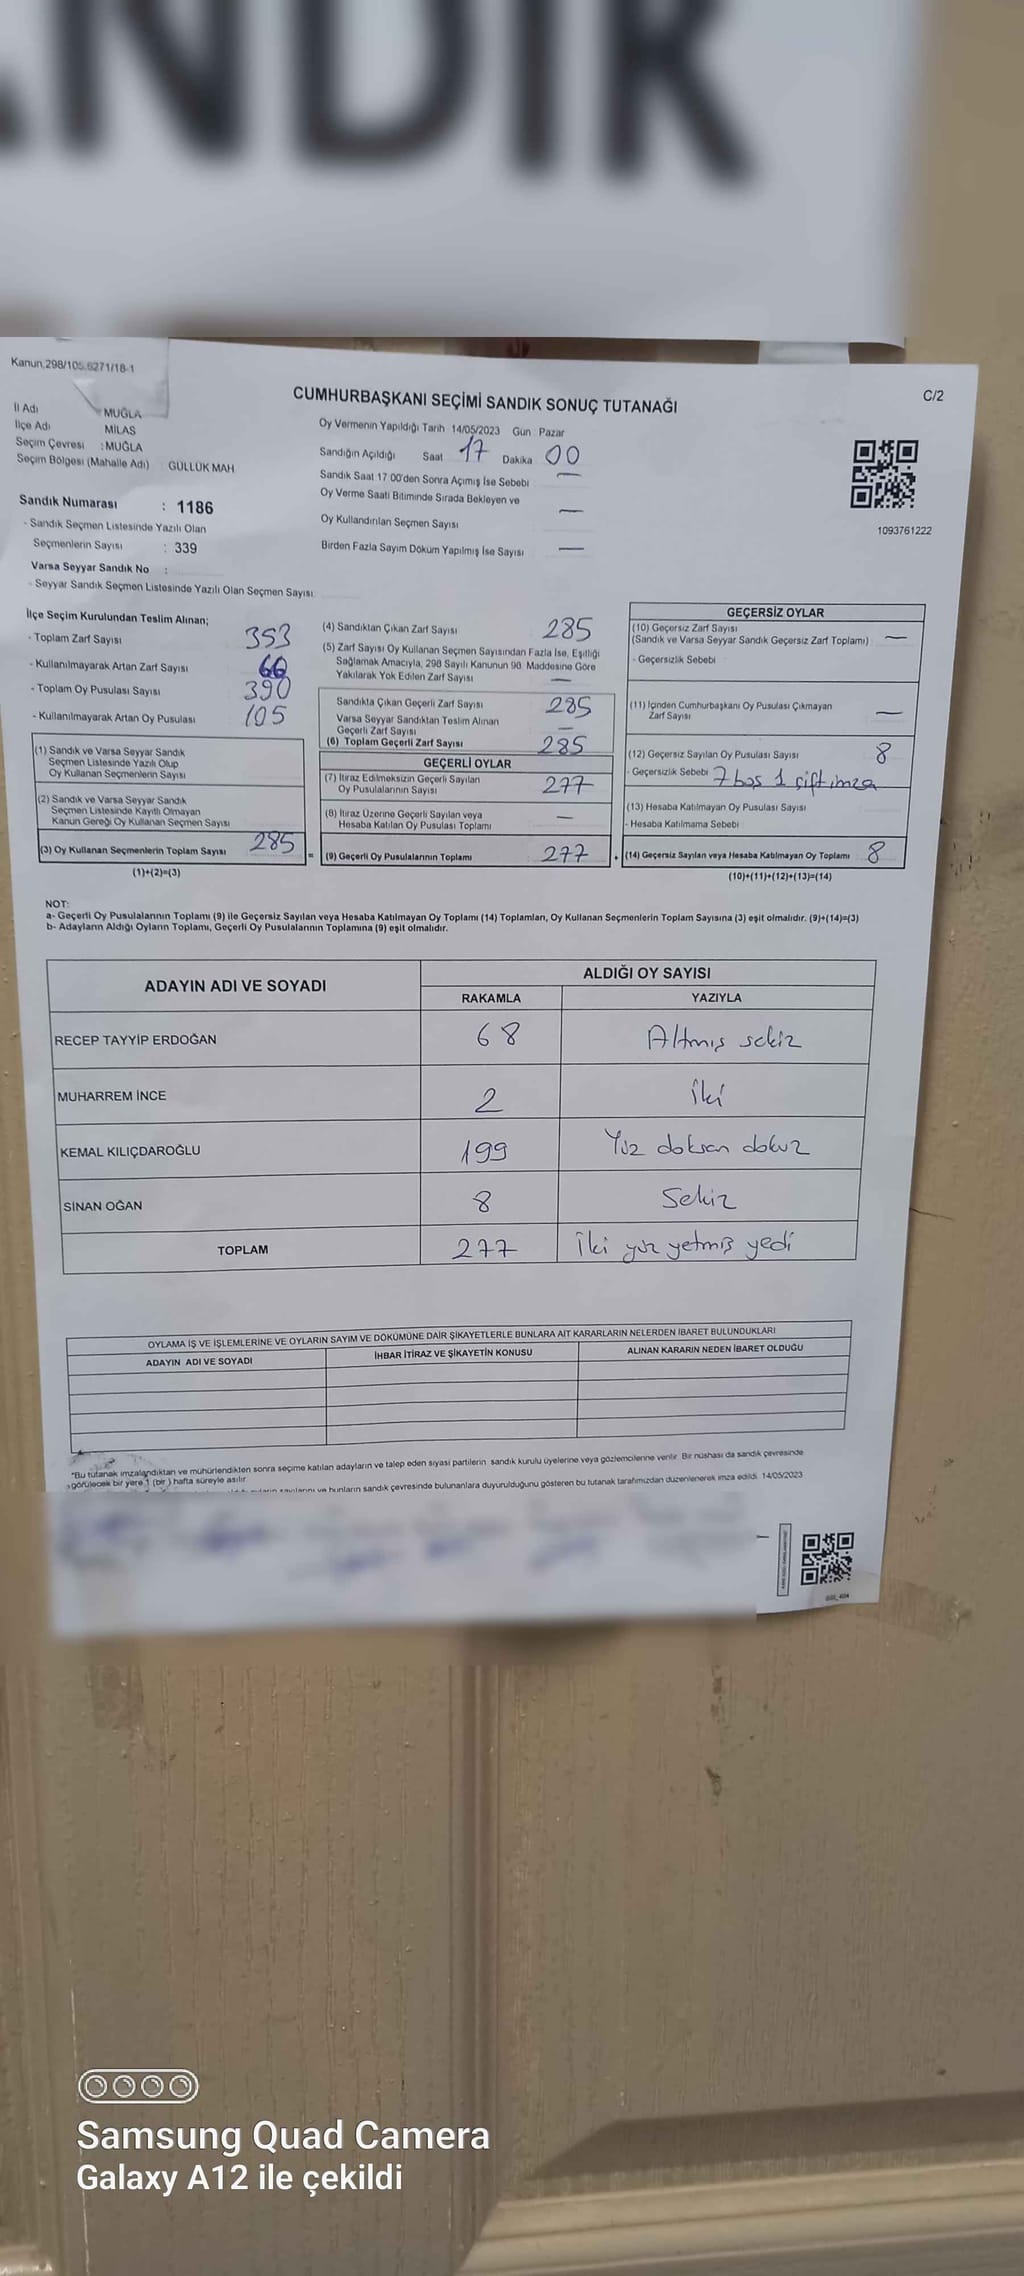 ANDIK
Kanun,298/105,6271/18-1
CUMHURBAŞKANI SEÇİMİ SANDIK SONUÇ TUTANAĞI
C/2
İl Adı : MUĞLA
İlçe Adı MİLAS
Seçim Çevresi : MUĞLA
Seçim Bölgesi (Mahalle Adı) : GÜLLÜK MAH
Sandık Numarası : 1186
- Sandık Seçmen Listesinde Yazılı Olan
Seçmenlerin Sayısı : 339
Varsa Seyyar Sandık No :
- Seyyar Sandık Seçmen Listesinde Yazılı Olan Seçmen Sayısı:
Oy Vermenin Yapıldığı Tarih 14/05/2023 Gün : Pazar
Sandığın Açıldığı Saat 17 Dakika 00
Sandık Saat 17:00'den Sonra Açımış İse Sebebi —
Oy Verme Saati Bitiminde Sırada Bekleyen ve
Oy Kullandırılan Seçmen Sayısı —
Birden Fazla Sayım Döküm Yapılmış İse Sayısı —
1093761222
İlçe Seçim Kurulundan Teslim Alınan;
- Toplam Zarf Sayısı 353
- Kullanılmayarak Artan Zarf Sayısı
- Toplam Oy Pusulası Sayısı 390
- Kullanılmayarak Artan Oy Pusulası 105
(1) Sandık ve Varsa Seyyar Sandık
Seçmen Listesinde Yazılı Olup
Oy Kullanan Seçmenlerin Sayısı
(2) Sandık ve Varsa Seyyar Sandık
Seçmen Listesinde Kayıtlı Olmayan
Kanun Gereği Oy Kullanan Seçmen Sayısı
(3) Oy Kullanan Seçmenlerin Toplam Sayısı 285
(1)+(2)=(3)
(4) Sandıktan Çıkan Zarf Sayısı 285
(5) Zarf Sayısı Oy Kullanan Seçmen Sayısından Fazla İse, Eşitliği
Sağlamak Amacıyla, 298 Sayılı Kanunun 98. Maddesine Göre
Yakılarak Yok Edilen Zarf Sayısı —
Sandıkta Çıkan Geçerli Zarf Sayısı 285
Varsa Seyyar Sandıktan Teslim Alınan
Geçerli Zarf Sayısı —
(6) Toplam Geçerli Zarf Sayısı 285
GEÇERLİ OYLAR
(7) İtiraz Edilmeksizin Geçerli Sayılan
Oy Pusulalarının Sayısı 277
(8) İtiraz Üzerine Geçerli Sayılan veya
Hesaba Katılan Oy Pusulası Toplamı —
= (9) Geçerli Oy Pusulalarının Toplamı 277 +
GEÇERSİZ OYLAR
(10) Geçersiz Zarf Sayısı
(Sandık ve Varsa Seyyar Sandık Geçersiz Zarf Toplamı) —
- Geçersizlik Sebebi
(11) İçinden Cumhurbaşkanı Oy Pusulası Çıkmayan
Zarf Sayısı —
(12) Geçersiz Sayılan Oy Pusulası Sayısı 8
- Geçersizlik Sebebi 7 boş 1 çift imza
(13) Hesaba Katılmayan Oy Pusulası Sayısı
- Hesaba Katılmama Sebebi
(14) Geçersiz Sayılan veya Hesaba Katılmayan Oy Toplamı 8
(10)+(11)+(12)+(13)=(14)
NOT:
a- Geçerli Oy Pusulalarının Toplamı (9) ile Geçersiz Sayılan veya Hesaba Katılmayan Oy Toplamı (14) Toplamları, Oy Kullanan Seçmenlerin Toplam Sayısına (3) eşit olmalıdır. (9)+(14)=(3)
b- Adayların Aldığı Oyların Toplamı, Geçerli Oy Pusulalarının Toplamına (9) eşit olmalıdır.
ADAYIN ADI VE SOYADI ALDIĞI OY SAYISI
RAKAMLA YAZIYLA
RECEP TAYYİP ERDOĞAN 68 Altmış sekiz
MUHARREM İNCE 2 iki
KEMAL KILIÇDAROĞLU 199 Yüz doksan dokuz
SİNAN OĞAN 8 Sekiz
TOPLAM 277 İki yüz yetmiş yedi
OYLAMA İŞ VE İŞLEMLERİNE VE OYLARIN SAYIM VE DÖKÜMÜNE DAİR ŞİKAYETLERLE BUNLARA AİT KARARLARIN NELERDEN İBARET BULUNDUKLARI
ADAYIN ADI VE SOYADI İHBAR İTİRAZ VE ŞİKAYETİN KONUSU ALINAN KARARIN NEDEN İBARET OLDUĞU
*Bu tutanak imzalandıktan ve mühürlendikten sonra seçime katılan adayların ve talep eden siyasi partilerin sandık kurulu üyelerine veya gözlemcilerine verilir. Bir nüshası da sandık çevresinde
görülecek bir yere 1 (bir ) hafta süreyle asılır.
bunların sandık çevresinde bulunanlara duyurulduğunu gösteren bu tutanak tarafımızdan düzenlenerek imza edildi. 14/05/2023
Samsung Quad Camera
Galaxy A12 ile çekildi